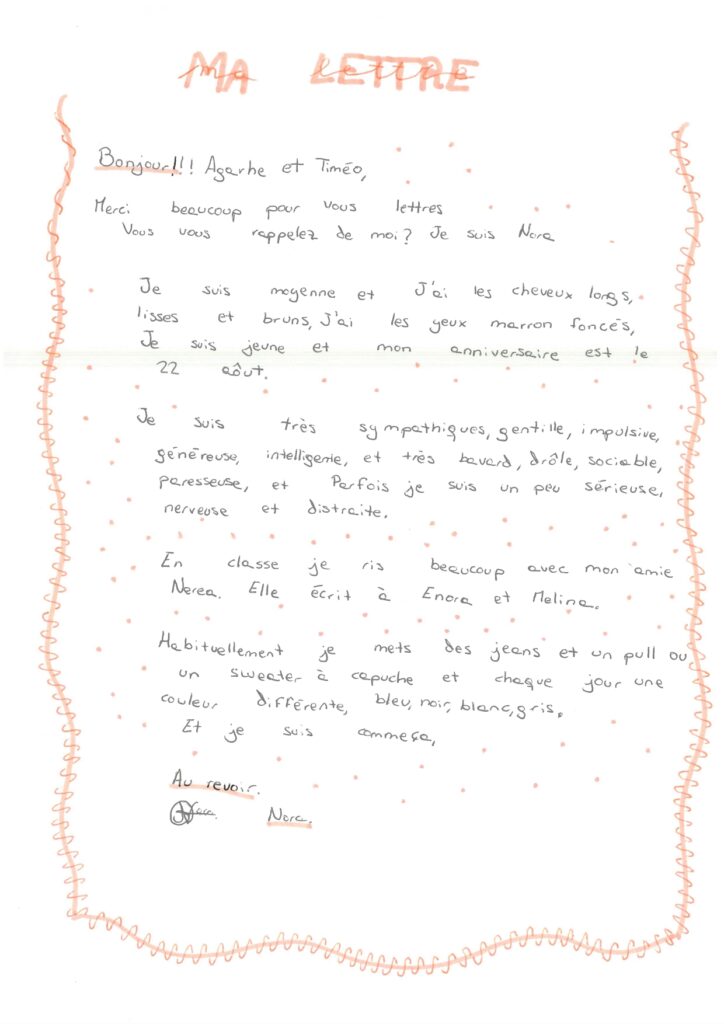 MA LETTRE
Bonjour!!! Agarhe et Timéo,
Merci beaucoup pour vous lettres
Vous vous rappelez de moi? Je suis Nora
Je suis moyenne et J'ai les cheveux longs,
lisses et bruns, J'ai les yeux marron foncés,
Je suis jeune et mon anniversaire est le
22 aôut.
Je suis très sympathiques, gentille, impulsive,
généreuse, intelligente, et très bavard, drôle, sociable,
paresseuse, et Parfois je suis un peu sérieuse,
nerveuse et distraite.
En classe je ris beaucoup avec mon amie
Nerea. Elle écrit à Enora et Melina.
Habituellement je mets des jeans et un pull ou
un sweater à capuche et chaque jour une
couleur différente, bleu, noir, blanc, gris.
Et je suis commeça,
Au revoir.
Nora.